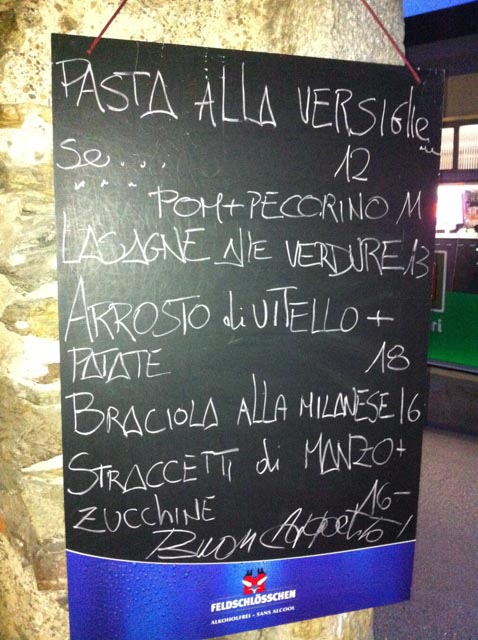 PASTA ALLA VERSIGLIE
SE... 12
POM+PECORINO 11
LASAGNE ALLE VERDURE 13
ARROSTO di VITELLO +
PATATE 18
BRACIOLA ALLA MILANESE 16
STRACCETTI di MANZO+
ZUCCHINE 16-
BUON Appetito!
FELDSCHLÖSSCHEN
ALKOHOLFREI - SANS ALCOOL